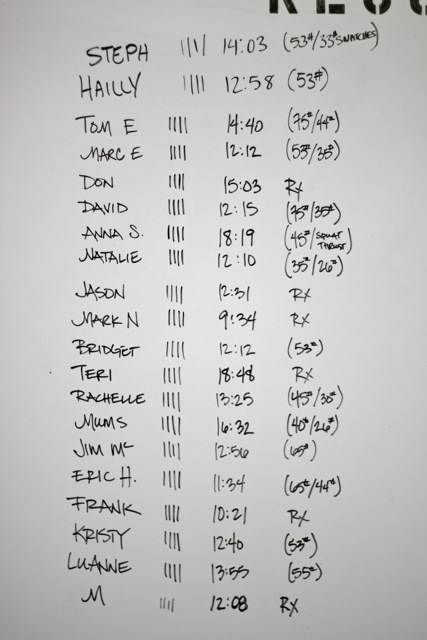 STEPH |||| 14:03 (53#/33# SNATCHES)
HAILLY |||| 12:58 (53#)
TOM E |||| 14:40 (75#/44#)
MARC E |||| 12:12 (53#/35#)
DON |||| 15:03 Rx
DAVID |||| 12:15 (75#/35#)
ANNA S. |||| 18:19 (45#/SQUAT THRUST)
NATALIE |||| 12:10 (35#/26#)
JASON |||| 12:31 Rx
MARK N |||| 9:34 Rx
BRIDGET |||| 12:12 (53#)
TERI |||| 18:48 Rx
RACHELLE |||| 13:25 (45#/30#)
MUMS |||| 16:32 (40#/26#)
JIM Mc |||| 12:56 (65#)
ERIC H. |||| 11:34 (65#/44#)
FRANK |||| 10:21 Rx
KRISTY |||| 12:40 (53#)
LUANNE |||| 13:55 (55#)
M |||| 12:08 Rx